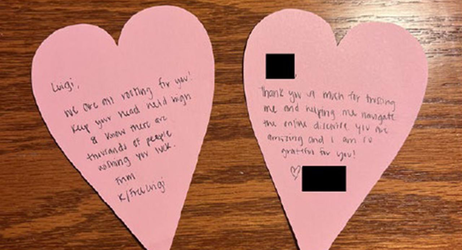 Luigi,
We are all rooting for you!
Keep your head held high
& know there are
thousands of people
wishing you luck.
From
r/FreeLuigi
Thank you so much for trusting
me and helping me navigate
the online discourse. You are
amazing and I am so
grateful for you!